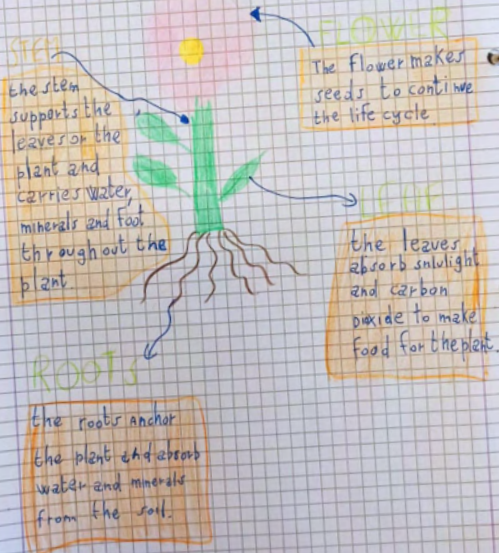 STEM
the stem
supports the
leaves or the
plant and
carries water,
minerals and foot
throughout the
plant.
FLOWER
The flower makes
seeds to continue
the life cycle.
LEAF
the leaves
absorb snlulight
and carbon
Dioxide to make
food for the plant.
ROOTS
the roots Anchor
the plant and absorb
water and minerals
from the soil.